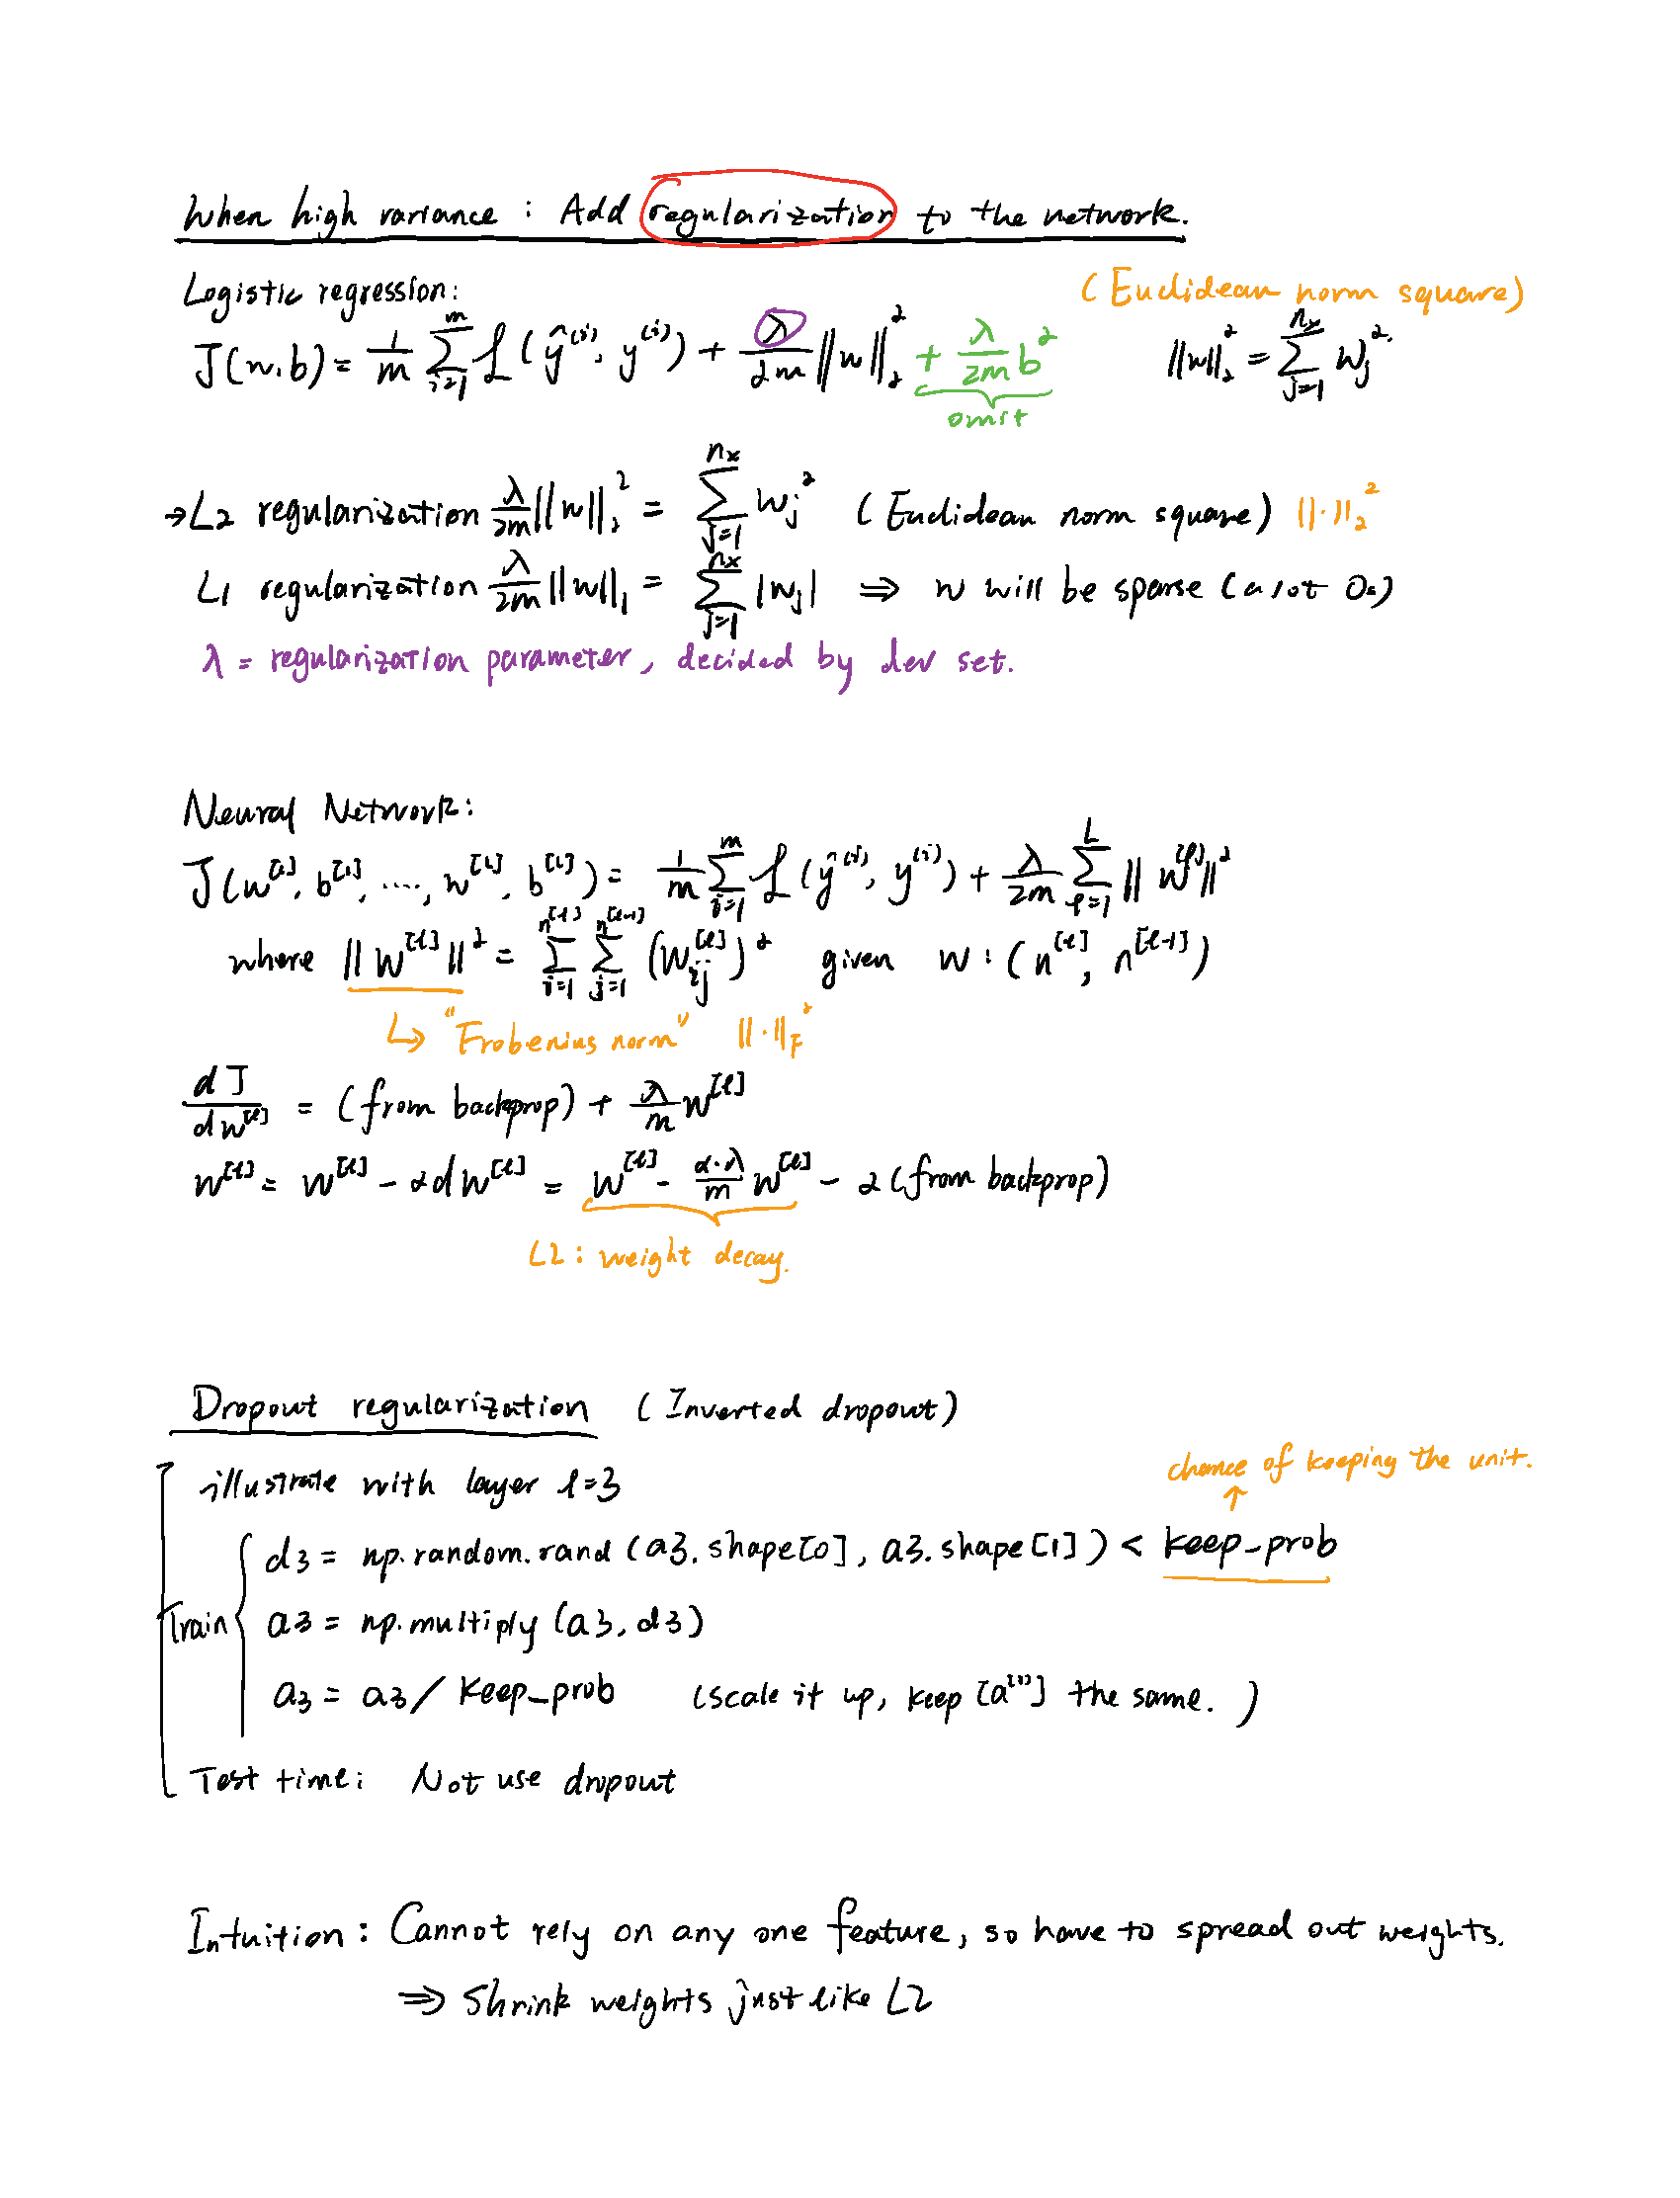 When high variance : Add regularization to the network.
Logistic regression:
(Euclidean norm square)
J(w,b) = 1/m ∑_{i=1}^{m} ℒ(ŷ^{(i)}, y^{(i)}) + λ/2m ||w||_2^2 + λ/2m b^2
||w||_2^2 = ∑_{j=1}^{n_x} w_j^2.
omit
→ L2 regularization λ/2m ||w||_2^2 = ∑_{j=1}^{n_x} w_j^2 (Euclidean norm square) ||·||_2^2
L1 regularization λ/2m ||w||_1 = ∑_{j=1}^{n_x} |w_j| ⇒ w will be sparse (a lot 0s)
λ = regularization parameter, decided by dev set.
Neural Network:
J(w^{[1]}, b^{[1]}, ...., w^{[L]}, b^{[L]}) = 1/m ∑_{i=1}^{m} ℒ(ŷ^{(i)}, y^{(i)}) + λ/2m ∑_{l=1}^{L} ||w^{[l]}||^2
where ||w^{[l]}||^2 = ∑_{i=1}^{n^{[l]}} ∑_{j=1}^{n^{[l-1]}} (w_{ij}^{[l]})^2 given w : (n^{[l]}, n^{[l-1]})
↳ "Frobenius norm" ||·||_F^2
dJ/dw^{[l]} = (from backprop) + λ/m w^{[l]}
w^{[l]} = w^{[l]} - αdw^{[l]} = w^{[l]} - α·λ/m w^{[l]} - α(from backprop)
L2 : weight decay.
Dropout regularization (Inverted dropout)
chance of keeping the unit.
illustrate with layer l=3
↑
d3 = np.random.rand(a3.shape[0], a3.shape[1]) < keep_prob
Train a3 = np.multiply(a3, d3)
a3 = a3 / keep_prob (scale it up, keep [a^{[3]}] the same. )
Test time: Not use dropout
Intuition : Cannot rely on any one feature, so have to spread out weights.
⇒ Shrink weights just like L2